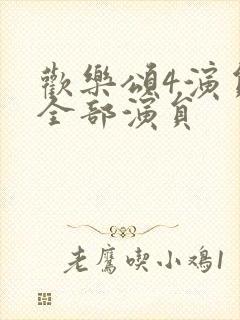 歡樂頌4,演員
全部演員
老鷹喫小鳮1